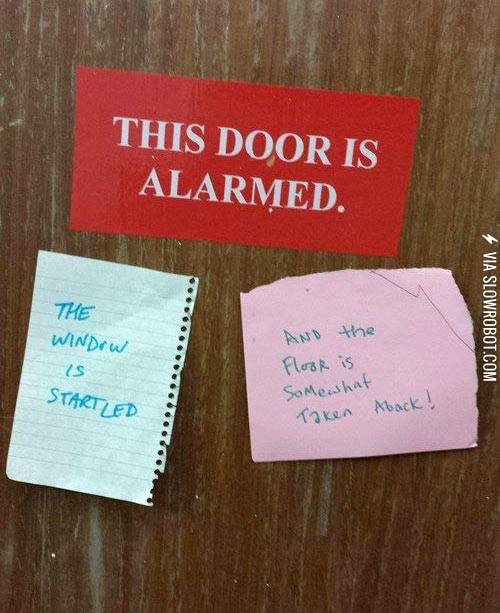 THIS DOOR IS
ALARMED.
THE
WINDOW
IS
STARTLED
AND the
FLOOR is
SOMEwhat
TAKEN ABACK!
VIA SLOWROBOT.COM